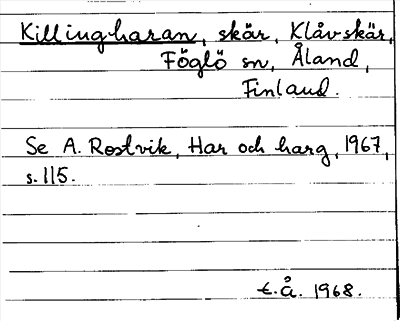 Killingharan, skär, Klåvskär,
Föglö sn, Åland,
Finland.
Se A. Rostvik, Har och harg, 1967,
s. 115.
t.å. 1968.